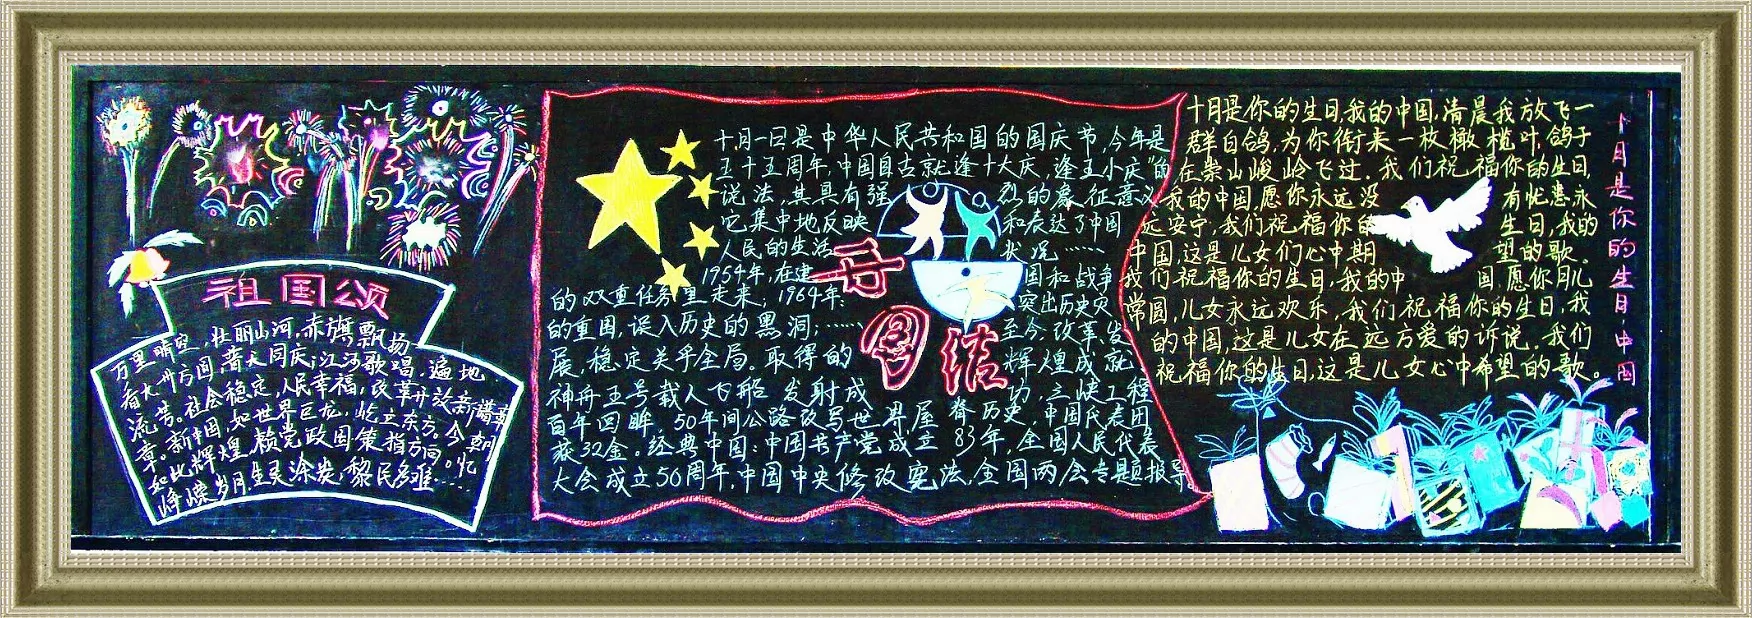 祖国颂
万里晴空,壮丽山河,赤旗飘扬
看大 方圆,普天同庆;江河歌唱,遍地
流芳。社会稳定,人民幸福,改革开放新谱章
章。新中国,如世界巨龙,屹立东方。今朝
如此辉煌,赖党政国策指方向。忆
峥嵘岁月,生灵涂炭,黎民多难……
十月一日是中华人民共和国的国庆节,今年是
五十五周年,中国自古就逢十大庆,逢五小庆"的
说法,其具有强烈的象征意义
它集中地反映和表达了中国
人民的生活状况……
1954年,在建国和战争
的双重任务里走来;1964年:突出历史灾
的重围,误入历史的黑洞;……至今,改革、发
展、稳定关乎全局。取得的辉煌成就
神舟五号载人飞船发射成功,三峡工程
百年回眸,50年间公路改写世界屋脊历史,中国代表团
获32金。经典中国:中国共产党成立83年,全国人民代表
大会成立50周年,中国中央修改宪法,全国两会专题报导
团结
十月是你的生日,我的中国,清晨我放飞一
群白鸽,为你衔来一枚橄榄叶,鸽子
在崇山峻岭飞过.我们祝福你的生日,
我的中国,愿你永远没有忧患永
远安宁,我们祝福你的生日,我的
中国,这是儿女们心中期望的歌。
我们祝福你的生日,我的中国,愿你月儿
常圆,儿女永远欢乐,我们祝福你的生日,我
的中国,这是儿女在远方爱的诉说.我们
祝福你的生日,这是儿女心中希望的歌。
十月是你的生日,中国